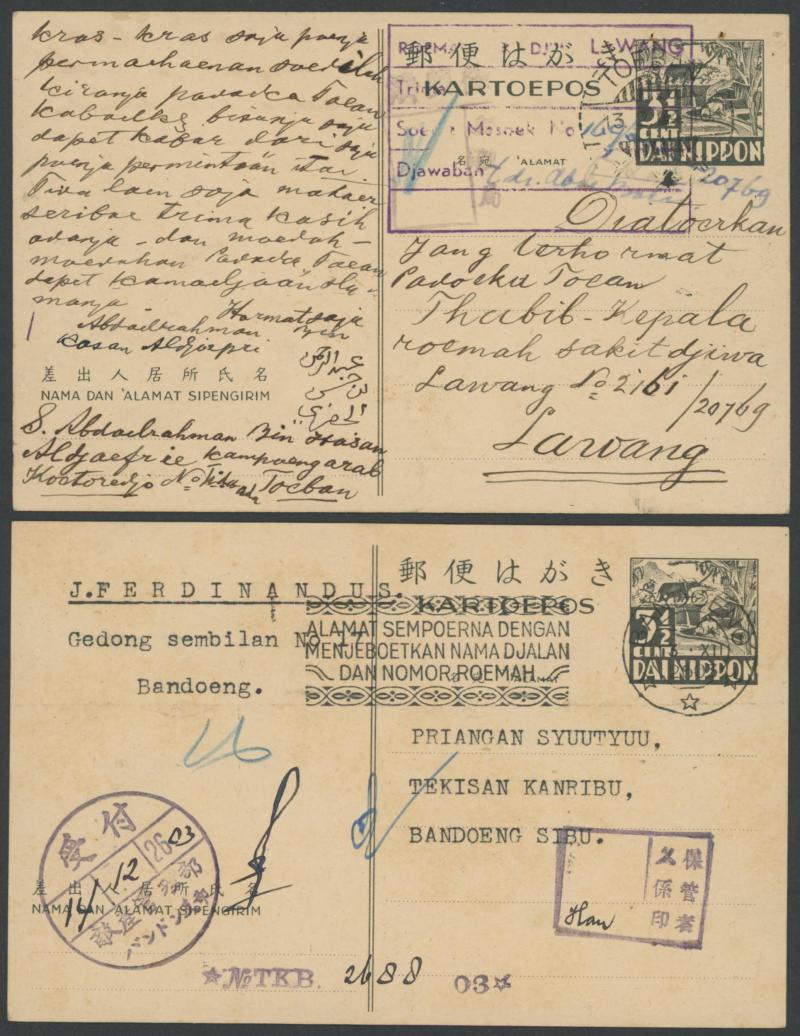 kras - kras saja poenja
permaehaenan soedilah
kiranja padoeka Toean
kaboelkę bisanja saja
dapet kabar dari saja
poenja permintaän itoe
Tiva lain saja mataer
seriboe trima kasih
adanja - dan moedah-
moedahan Padoeka Toean
dapet kamadjoeän sla-
manja
Hormat saja
Abdoelrahman Bin
Hasan Aldjoepri
差出人居所氏名
NAMA DAN ALAMAT SIPENGIRIM
S. Abdoelrahman Bin Hasan
Aldjaefrie kampoeng arab
Koetoredjo No Tida ada Toeban
郵便はがき
KARTOEPOS
ROEMA DJIWA LAWANG
Trima
Soerat Masoek No 169
Djawaban
名宛 ALAMAT
20769
3½
CENT
DAI NIPPON
Diatoerkan
Jang terhormat
Padoeka Toean
Thabib-Kepala
roemah sakit djiwa
Lawang No 2161/20769
Lawang
郵便はがき
KARTOEPOS
J.FERDINANDUS.
Gedong sembilan No 17
Bandoeng.
ALAMAT SEMPOERNA DENGAN
MENJEBOETKAN NAMA DJALAN
DAN NOMOR ROEMAH
ALAMAT
3½
CENT
DAI NIPPON
XII
PRIANGAN SYUUTYUU,
TEKISAN KANRIBU,
BANDOENG SIBU.
受付
14 12 26 03
敵産管理部
バンドン支部
差出人居所氏名
NAMA DAN ALAMAT SIPENGIRIM
保管者
又係印
Han
☆No TKB. 2688 03☆